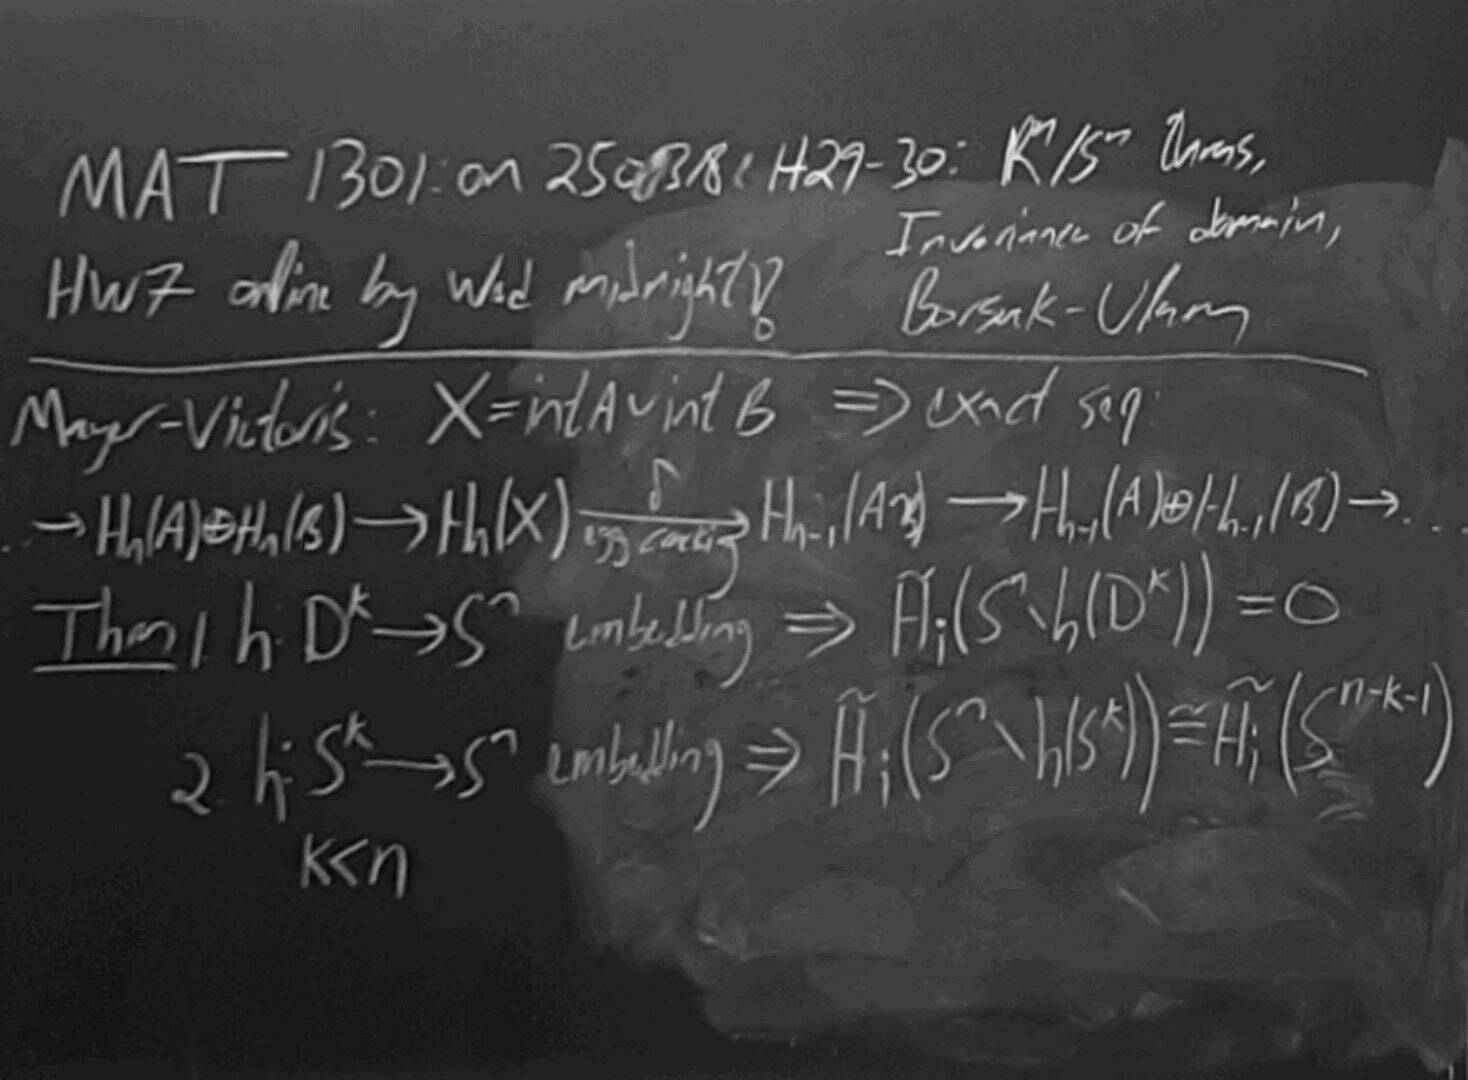 MAT 1301: on 250318: H29-30: Rⁿ/Sⁿ thms,
Invariance of domain,
HW7 online by Wed midnight!
Borsuk-Ulam
Mayer-Vietoris: X = int A ∪ int B ⇒ exact seq:
..→ Hₙ(A)⊕Hₙ(B) → Hₙ(X) —δ, egg cracking→ Hₙ₋₁(A∩B) → Hₙ₋₁(A)⊕Hₙ₋₁(B) → ....
Thm 1 h: Dᵏ → Sⁿ embedding ⇒ H̃ᵢ(Sⁿ∖h(Dᵏ)) = 0
2. h: Sᵏ → Sⁿ embedding ⇒ H̃ᵢ(Sⁿ∖h(Sᵏ)) ≅ H̃ᵢ(Sⁿ⁻ᵏ⁻¹)
k<n